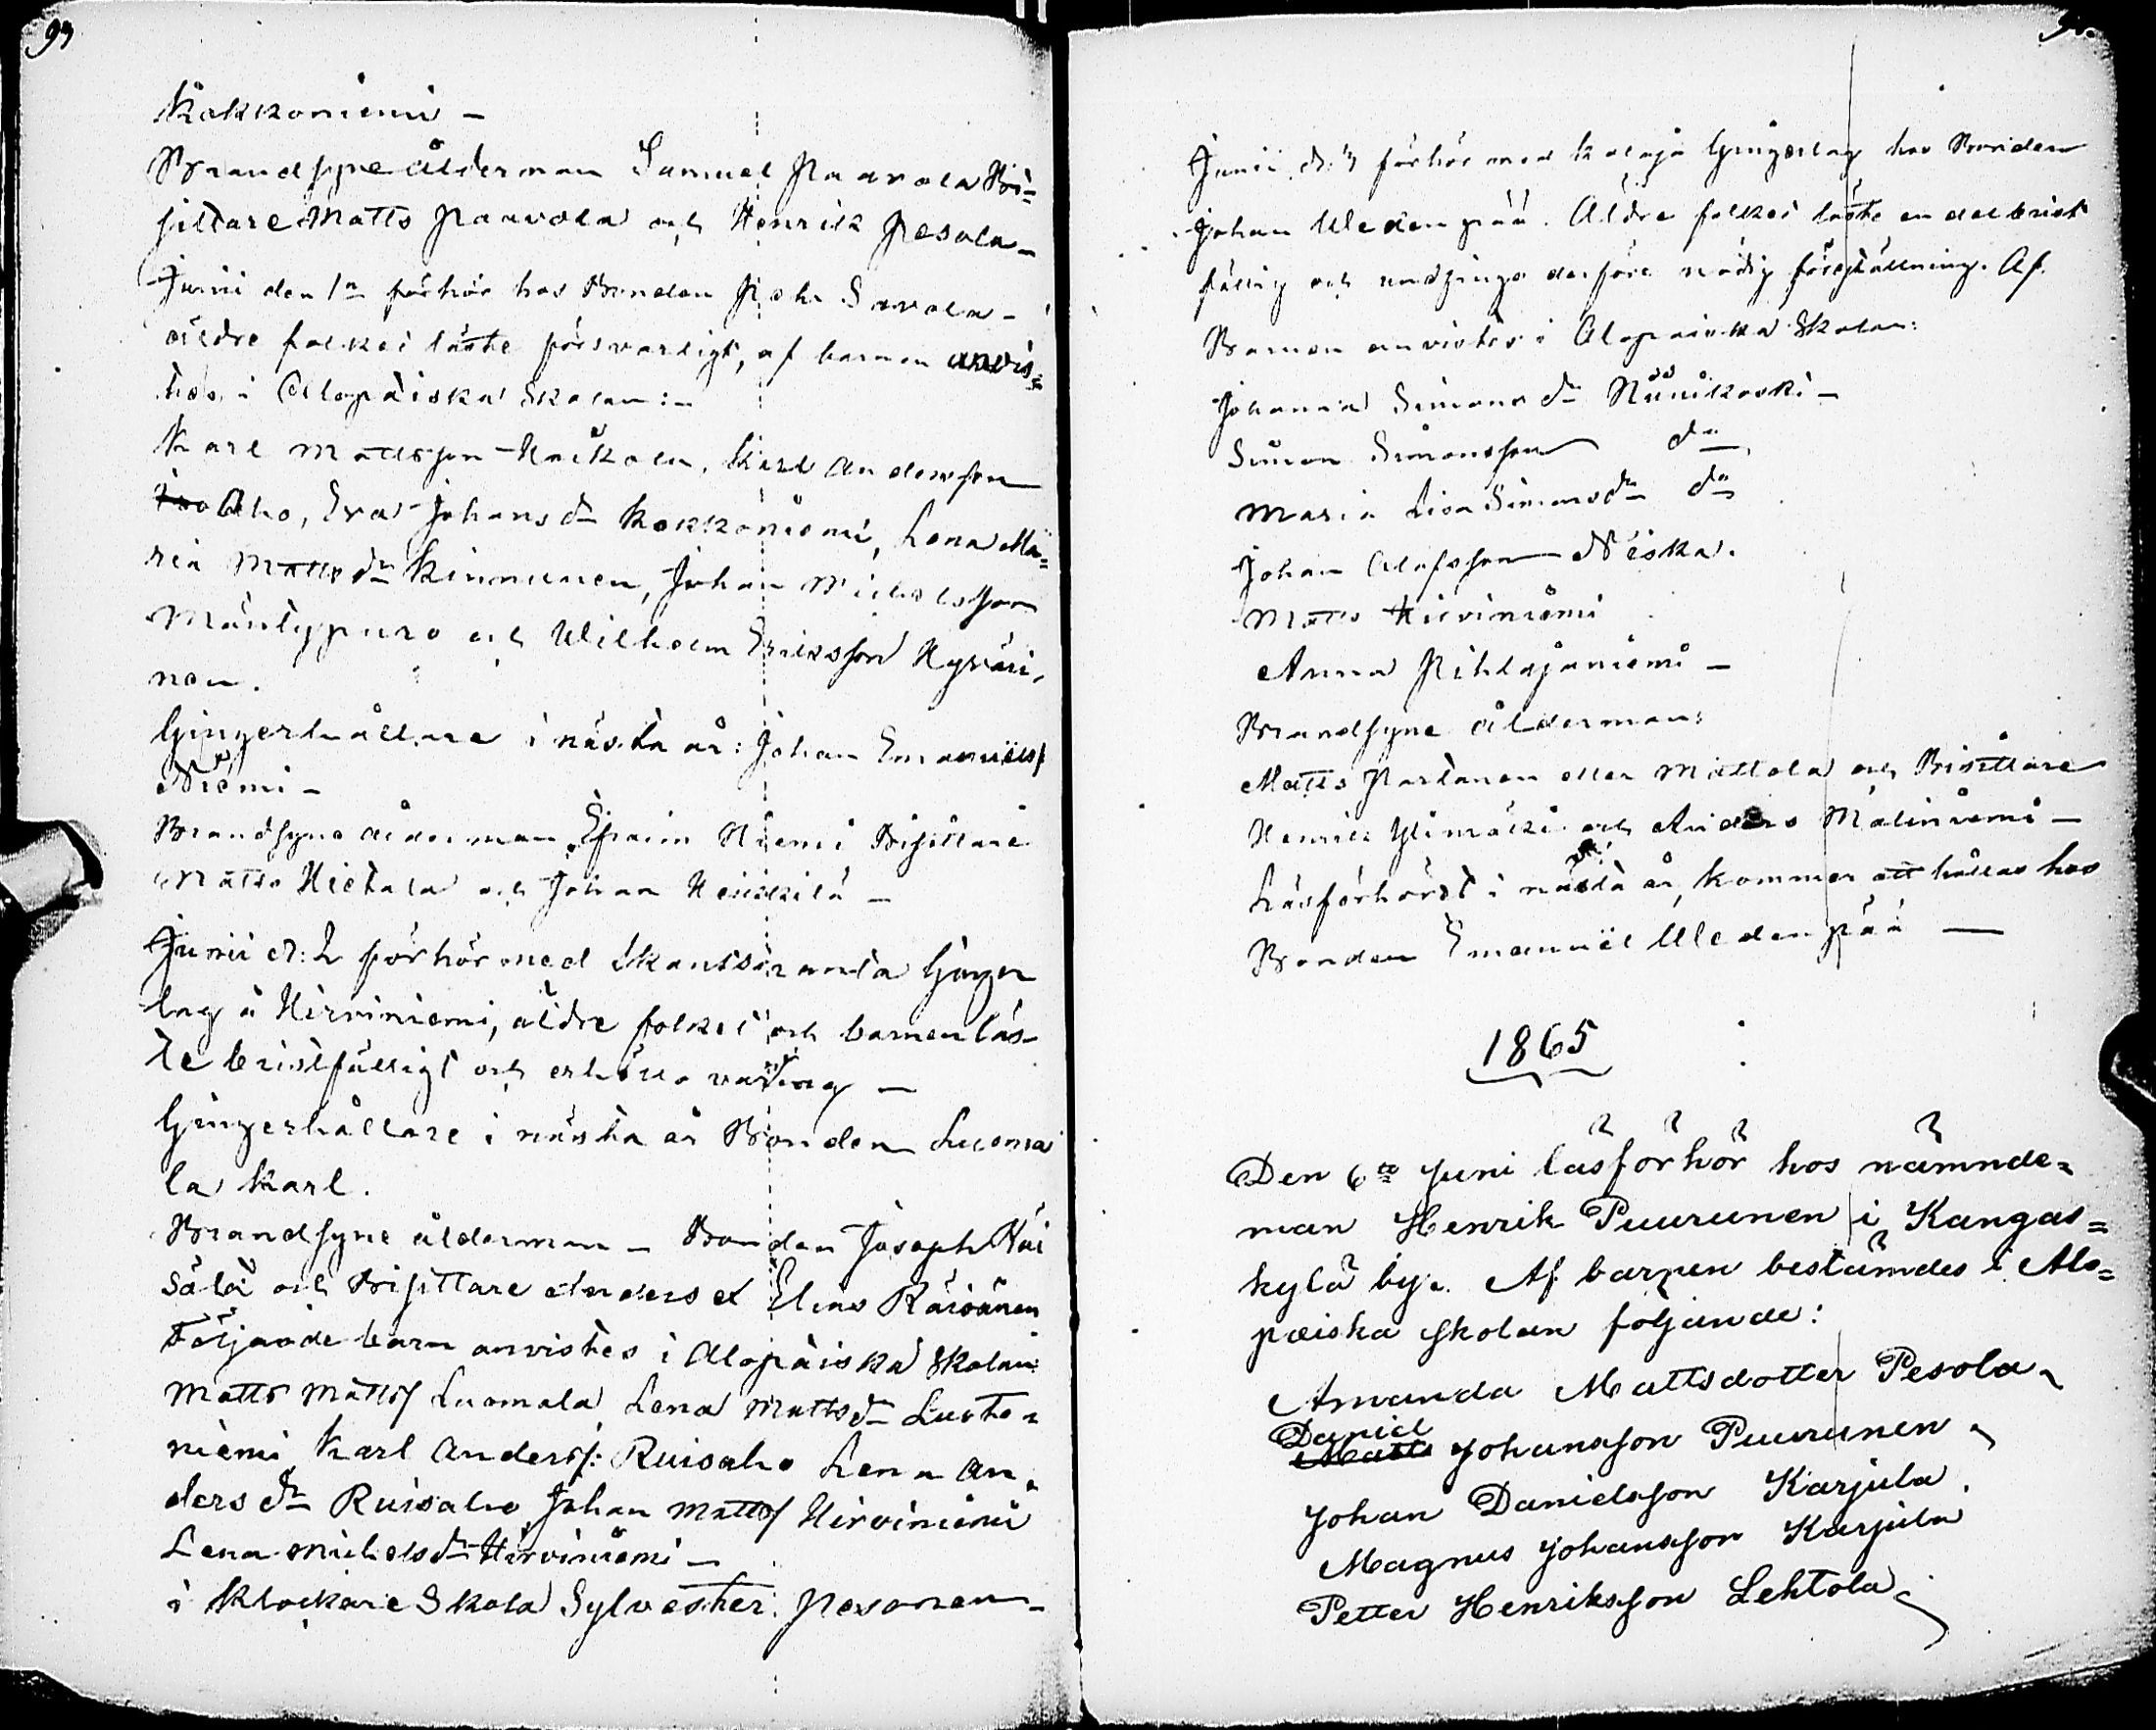 Kokkoniemi –
Brandsyne ålderman Samuel Paavola Bi=
sittare Matts Paavola och Henrik Pesola –
Junii den 1a förhör hos Bonden Savola –
äldre folket läste försvarligt, af barnen anvis=
tes i Alopäiska Skolan: –
Karl Mattsson Karl Andersson
Aho, Eva Johans dr Kokkoniemi, Lena Ma=
ria Matts dr Kinnunen, Johan Michelsson
Mäntypuro och Wilhelm Eriksson Hyväri,
nen.
Gingerhållare i nästa år: Johan Emanuels
Niemi –
Brandsyne ålderman Efraim Niemi Bisittare
Matts Hietala och Johan Heikkilä –
Junii d: 2 förhör med Skantsiranta Ginger
lag å Hirviniemi, äldre folket och barnen läs–
te bristfälligt och erhöllo varning –
Gingerhållare i nästa år Bonden Luoma
la Karl.
Brandsyne ålderman – Bonden Joseph Väi
sälä och Bisittare Anders et Elias Räisänen
Följande barn anvistes i Alopäiska Skolan:
Matts Matts Luomala, Lena Matts dr
niemi Karl Anders: Ruisaho Lena An,
ders dr Ruisaho Johan Matts Hirviniemi
Lena Michels dr Hirviniemi –
i Klockare Skola Sylvester Pesonen –
Junii d. 3 förhör med Gingerlag hos Bonden
Johan Uledenpää. Äldre folket läste en del brist
fällig och undfingo derföre nödig föreställning. Af
Barnen anvistes i Alopäiska Skolan:
Johanna Simons dr Niinikoski –
Simon Simonsson do
Maria Lisa Simons dr do
Johan Olofsson Niska.
Matts Hirviniemi
Anna Pihlajaniemi –
Brandsyne ålderman:
Matts Partanen eller Mattola och Bisittare
Henrik Ylimäki och Anders Malinniemi –
Läsförhöret i nästa år, kommer att hållas hos
Bonden Emanuel Uledenpää —
1865
Den 6te Juni läsförhör hos nämnde=
man Henrik Puurunen i Kangas=
kylä by. Af barnen bestämdes i Alo=
pæiska skolan följande:
Amanda Mattsdotter Pesola
Daniel
Matts Johansson Puurunen
Johan Danielsson Karjula
Magnus Johansson Karjula
Petter Henriksson Lehtola